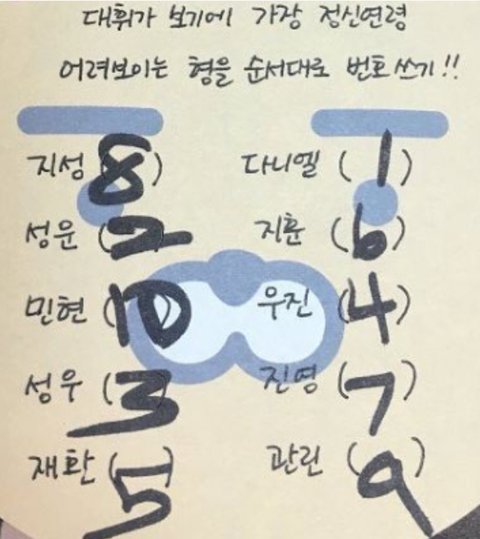 대휘가 보기에 가장 정신연령
어려보이는 형을 순서대로 번호 쓰기!!
지성 (8) 다니엘 (1)
성운 (2) 지훈 (6)
민현 (10) 우진 (4)
성우 (3) 진영 (7)
재환 (5) 관린 (9)